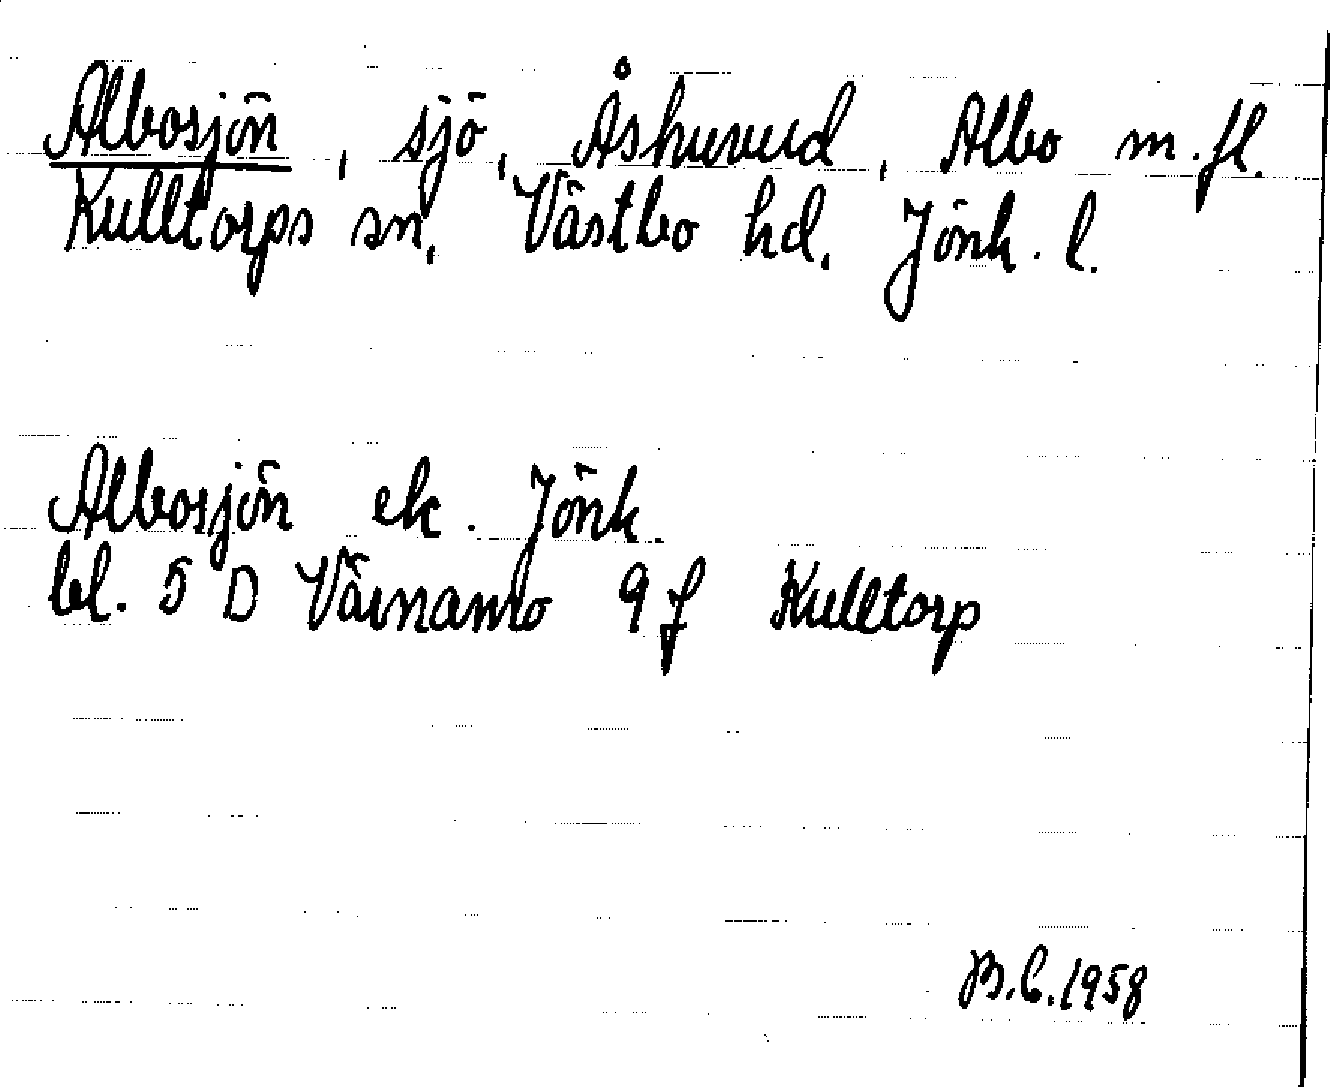 Albosjön, sjö, Åshuvud, Albo m.fl.
Kulltorps sn, Västbo hd, Jönk. l.
Albosjön ek. Jönk.
bl. 5 D Värnamo 9 f Kulltorp
B.C. 1958